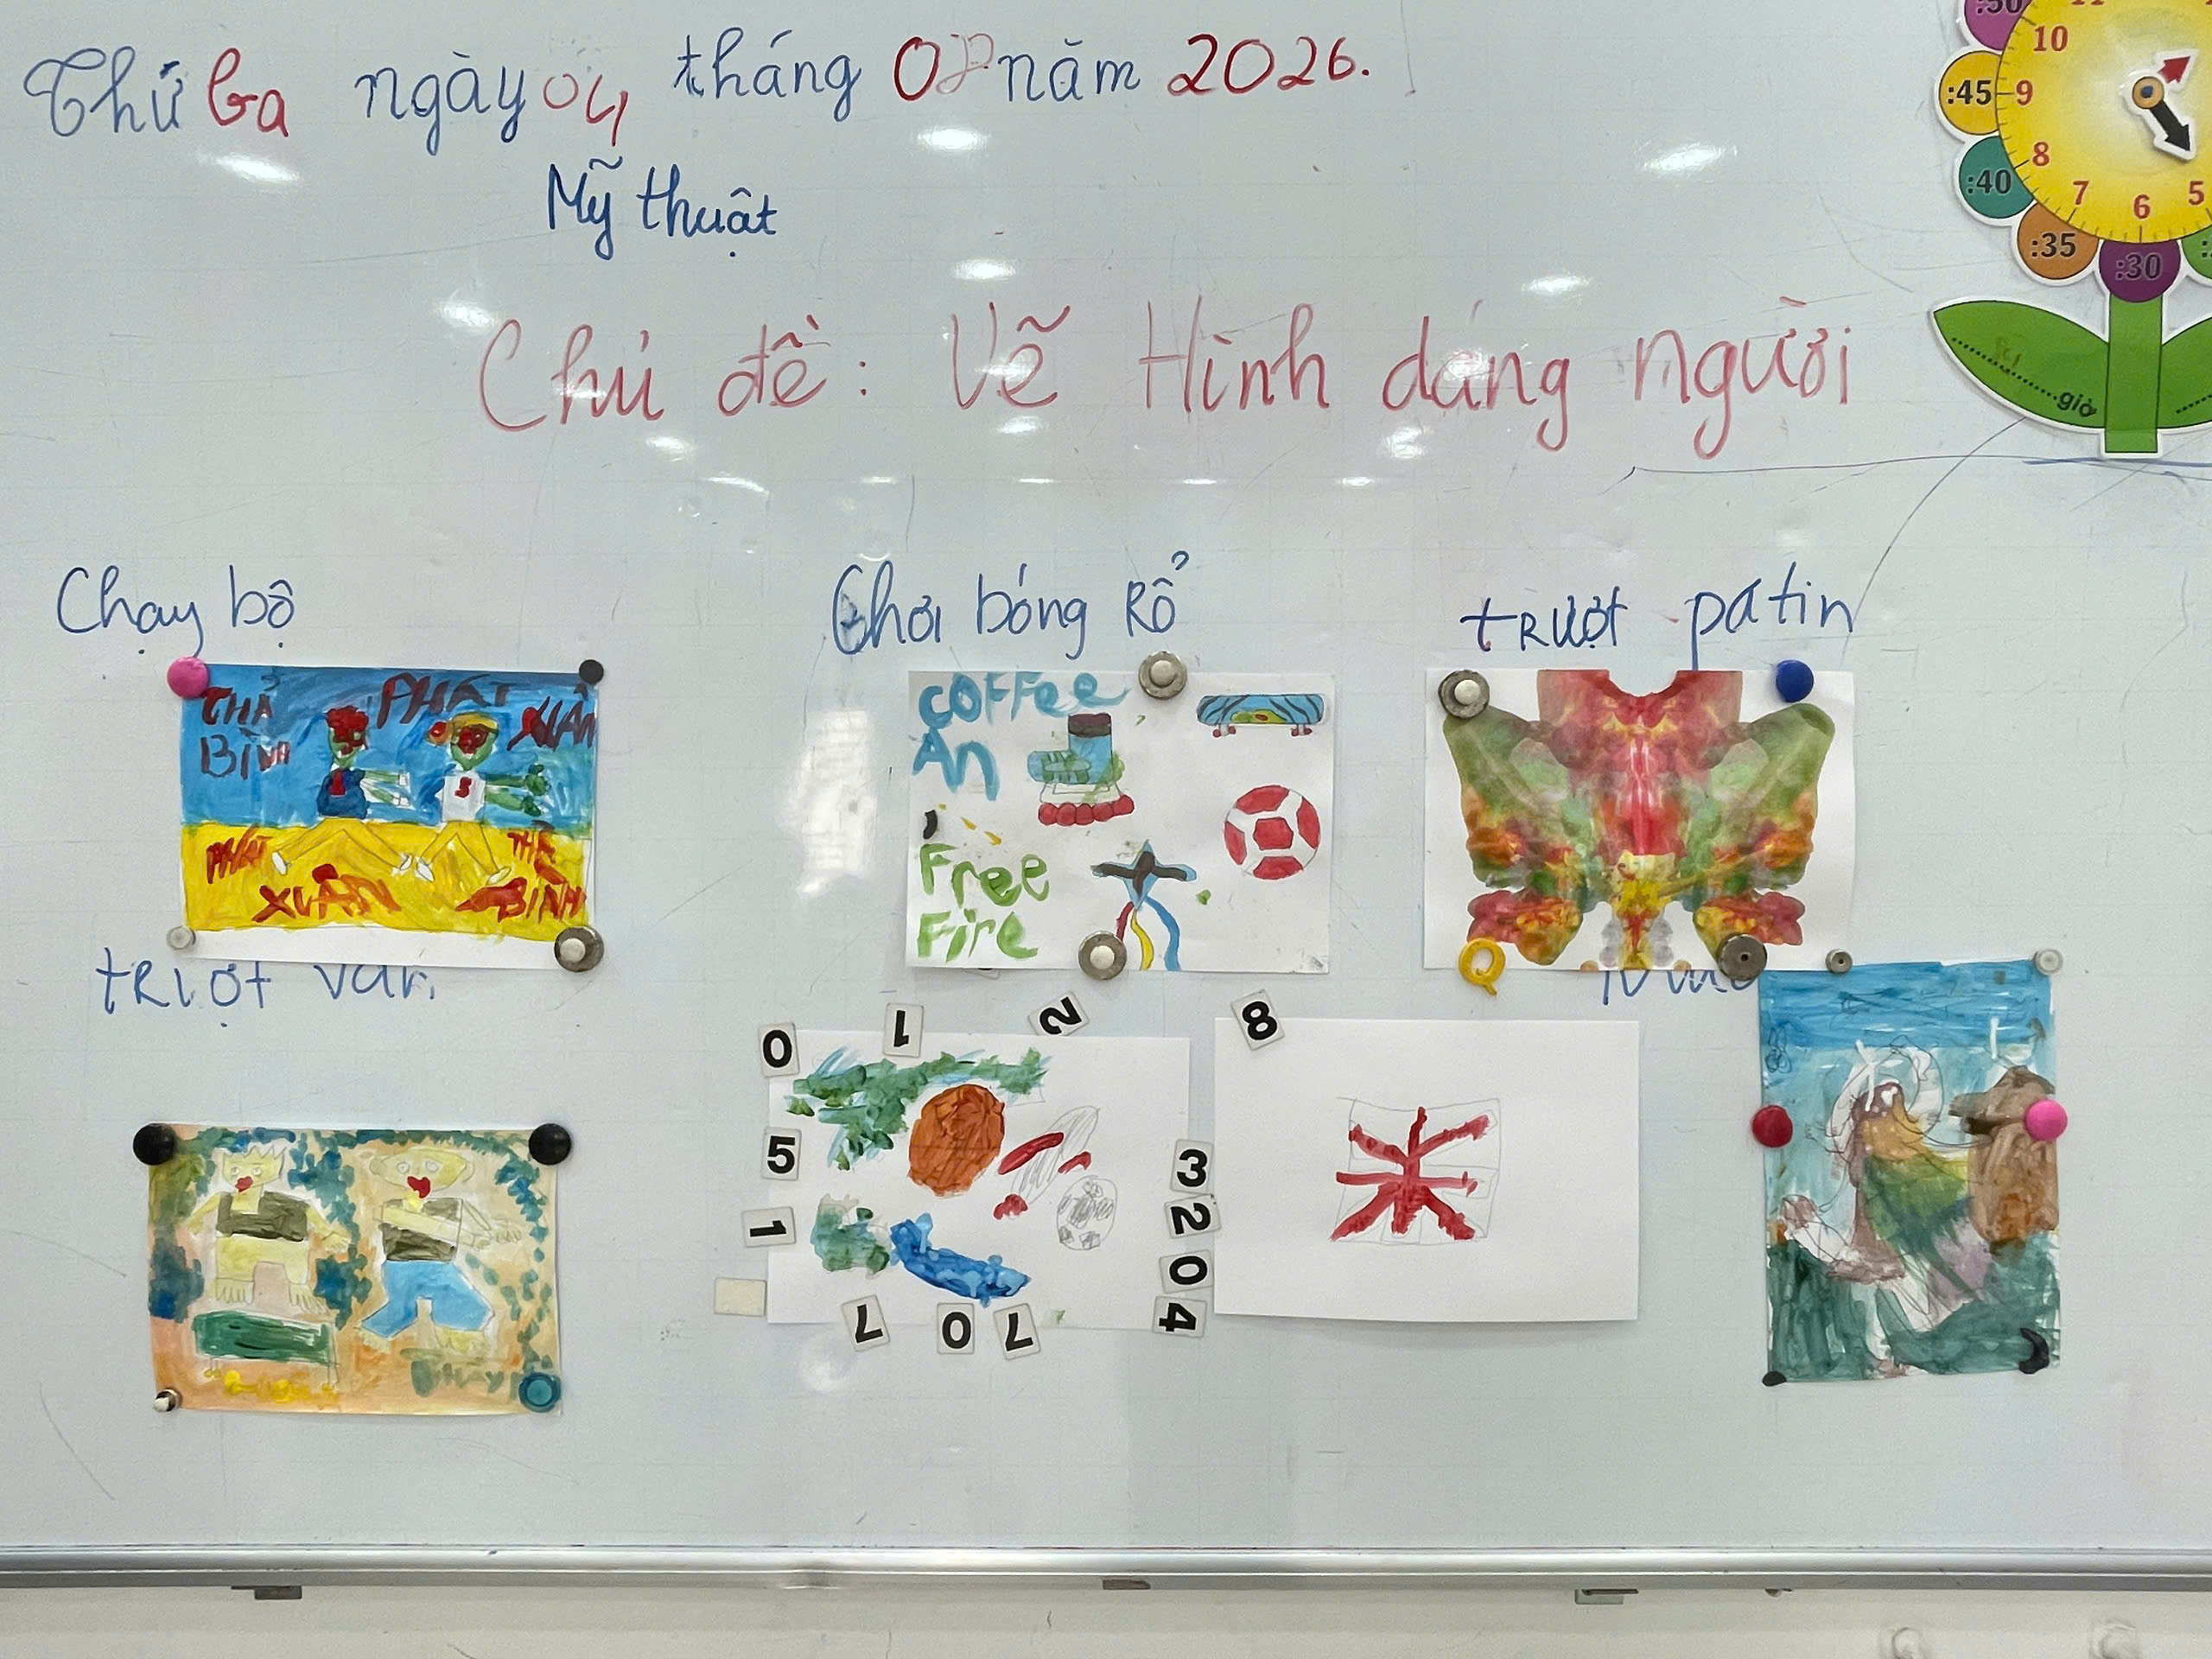 Thứ ba ngày 04 tháng 08 năm 2026.
Mỹ thuật
Chủ đề: Vẽ Hình dáng người
:50 :45 :40 :35 :30
10 9 8 7 6 5
giờ
Chạy bộ
Chơi bóng Rổ
trượt patin
THẢ BÌNH
PHÁT
XUÂN
PHÁT
XUÂN
THẢ BÌNH
COFFee
An
Free
Fire
Q
trượt ván
0 1 2 8
5
1
3
2
0
4
7 0 7